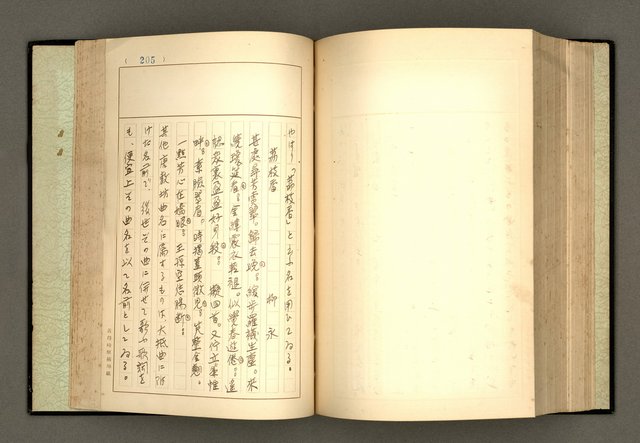 ( 205 )
やはり「荔枝香」と云ふ名を用ひてゐる。
荔枝香 柳永
甚處尋芳賞翠。歸去晚。緩步羅襪生塵。來
繞瓊筵看。金縷霞衣輕褪。似覺春遊倦。遙
認衆裏盈盈好身段。 擬回首。又佇立簾幃
畔。素臉翠眉。時揭蓋頭微見。笑整金翹。
一點芳心在嬌眼。王孫空恁腸斷。
其他唐敎坊曲名に屬するものは大抵曲に附
けた名前で、後世その曲に併せて歌ふ歌詞を
も、便宜上その曲名を以て名前としてゐる。